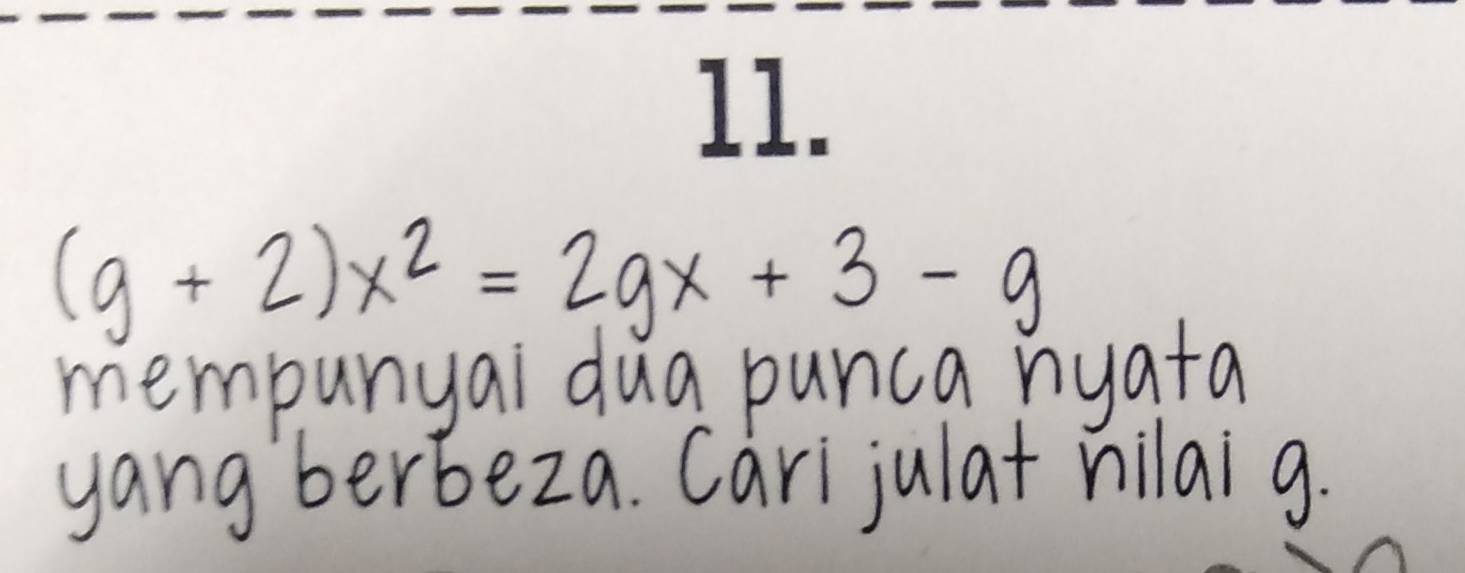 11.
(g + 2)x² = 2gx + 3 - g
mempunyai dua punca nyata
yang berbeza. Cari julat nilai g.